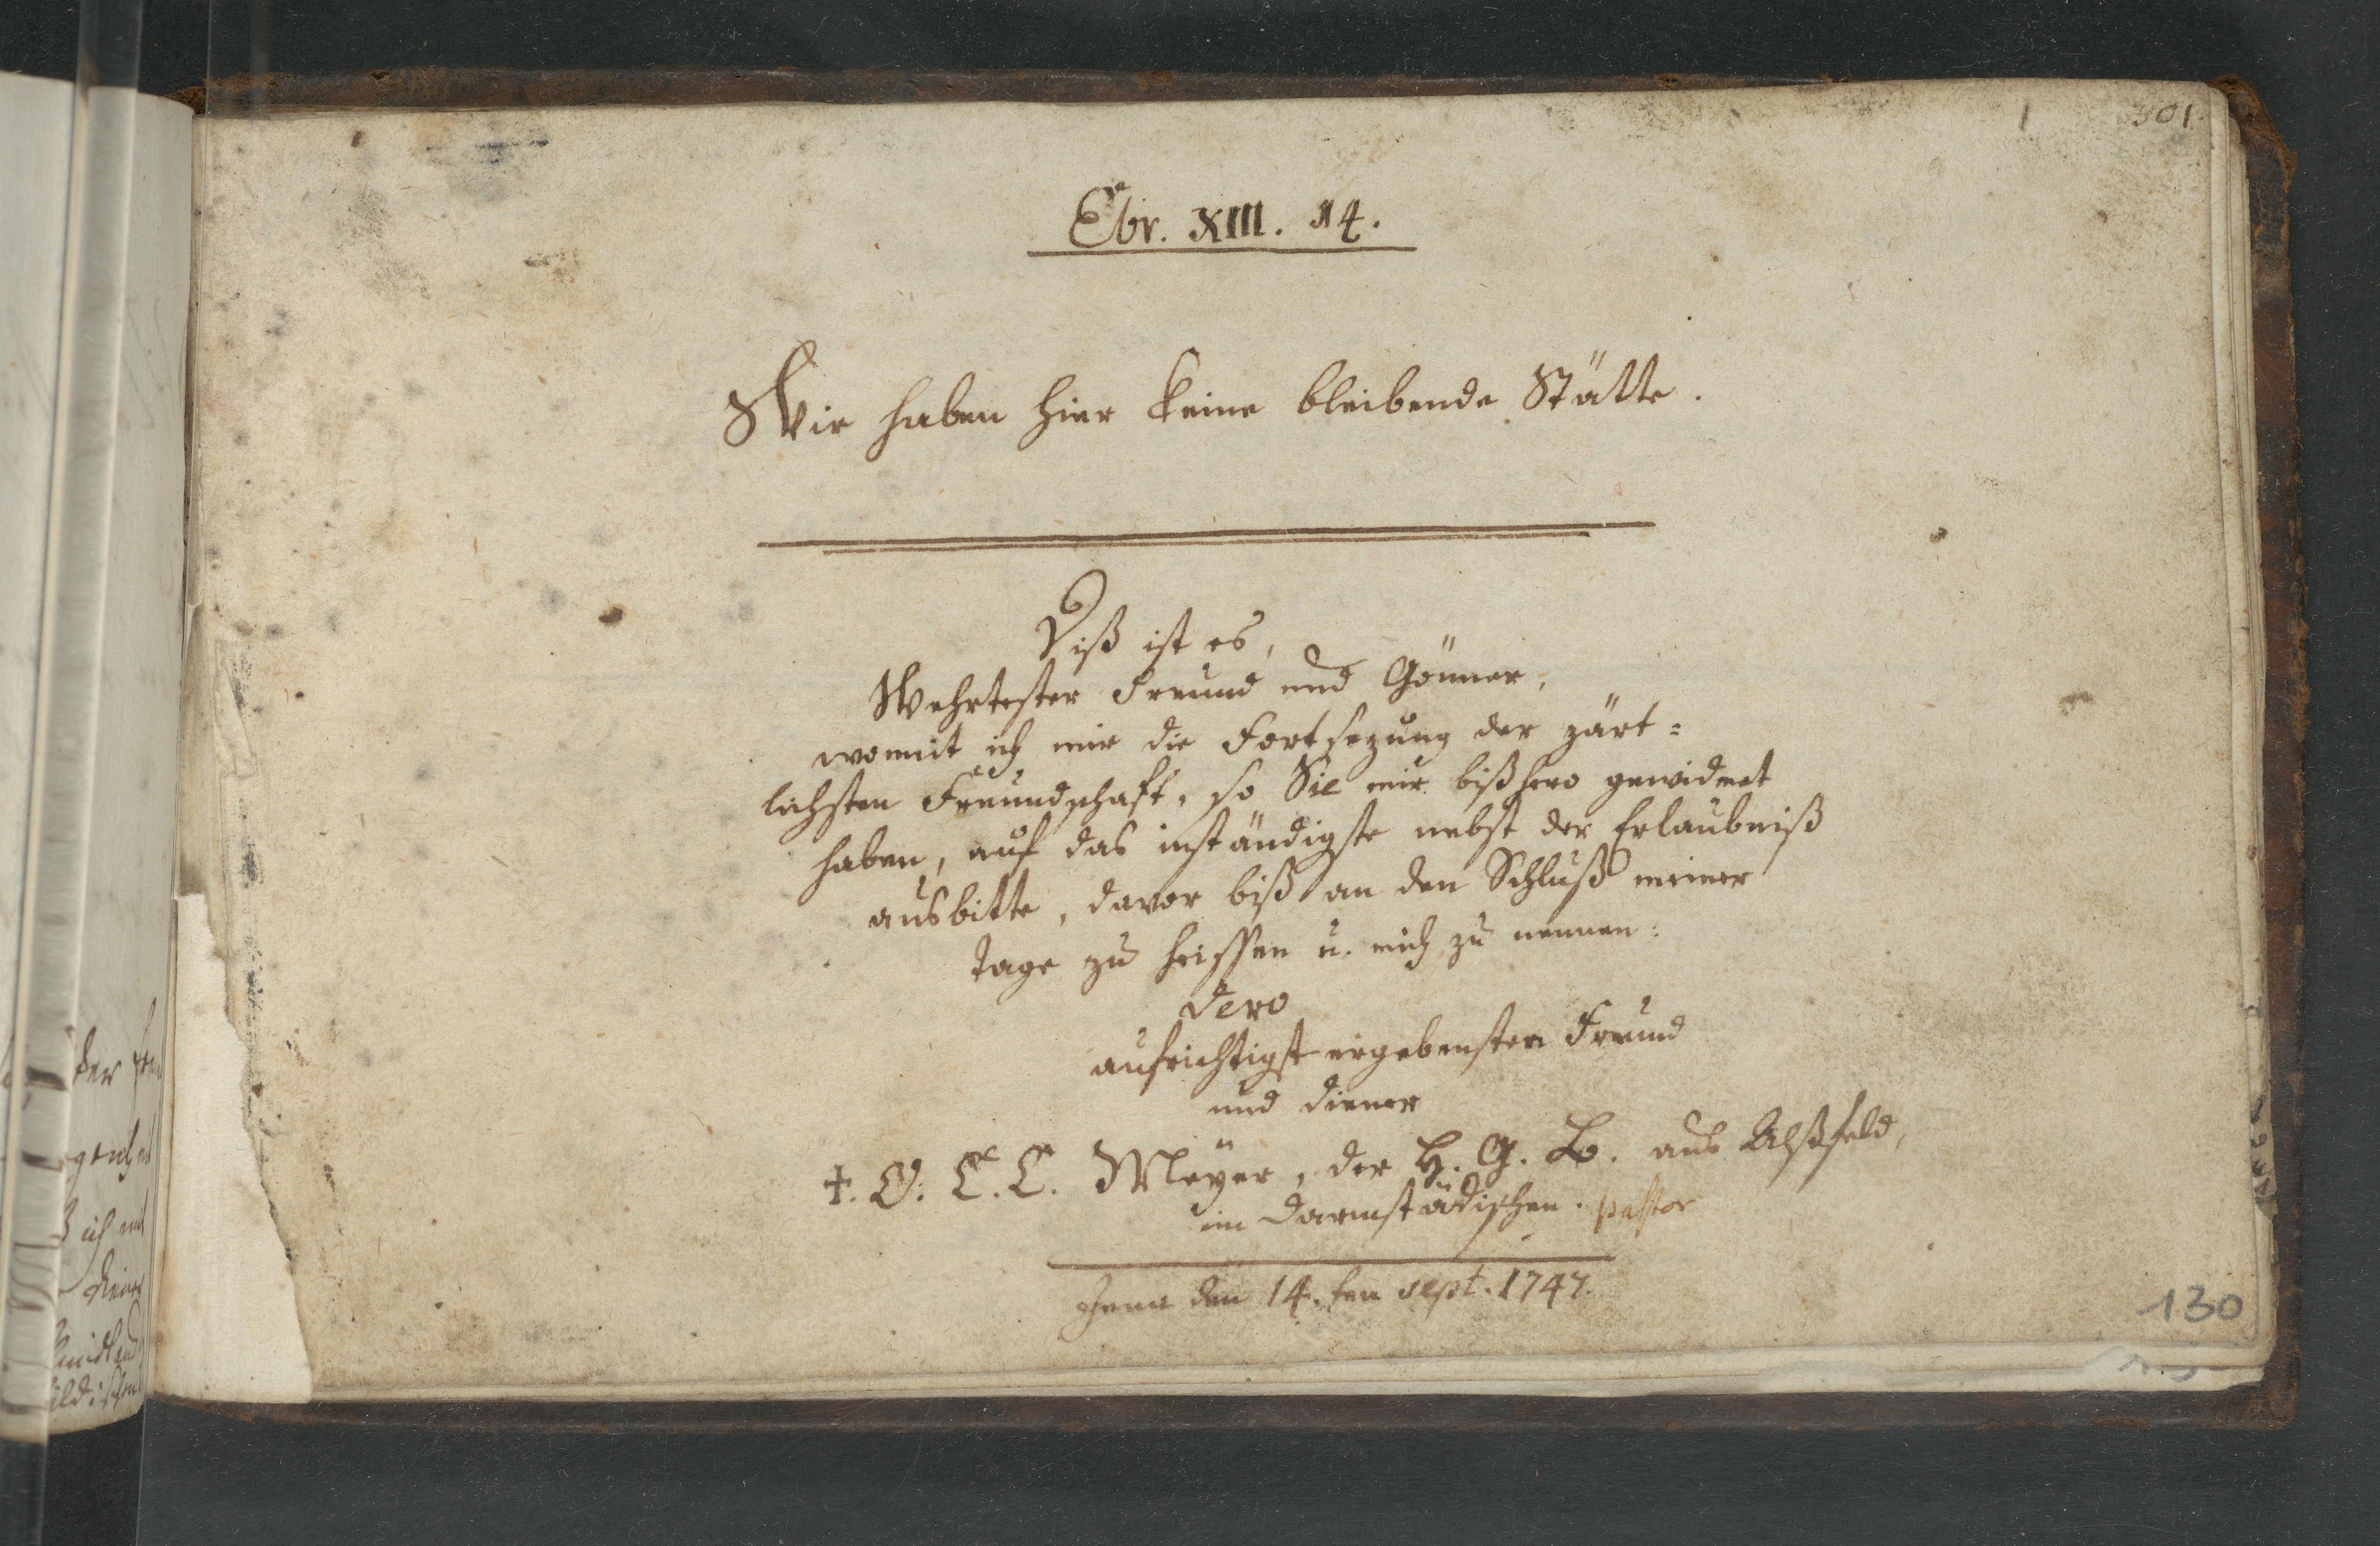 301.
Ebr. XIII. 14.
Wir haben hier keine bleibende Stätte.
Diß ist es,
Wehrtester Freund und Gönner,
womit ich mir die Fortsezung der zärt=
lichsten Freundschaft, so Sie mir bißhero gewidmet
haben, auf das inständigste nebst der Erlaubniß
ausbitte, davor biß an den Schluß meiner
Tage zu heissen u. mich zu nennen:
Dero
aufrichtigst ergebensten Freund
und Diener
+. O. C. C. Meÿer, der H. G. B. aus Alßfeld,
im Darmstädischen. pastor
Jena den 14. ten sept. 1747.
130
der
ich